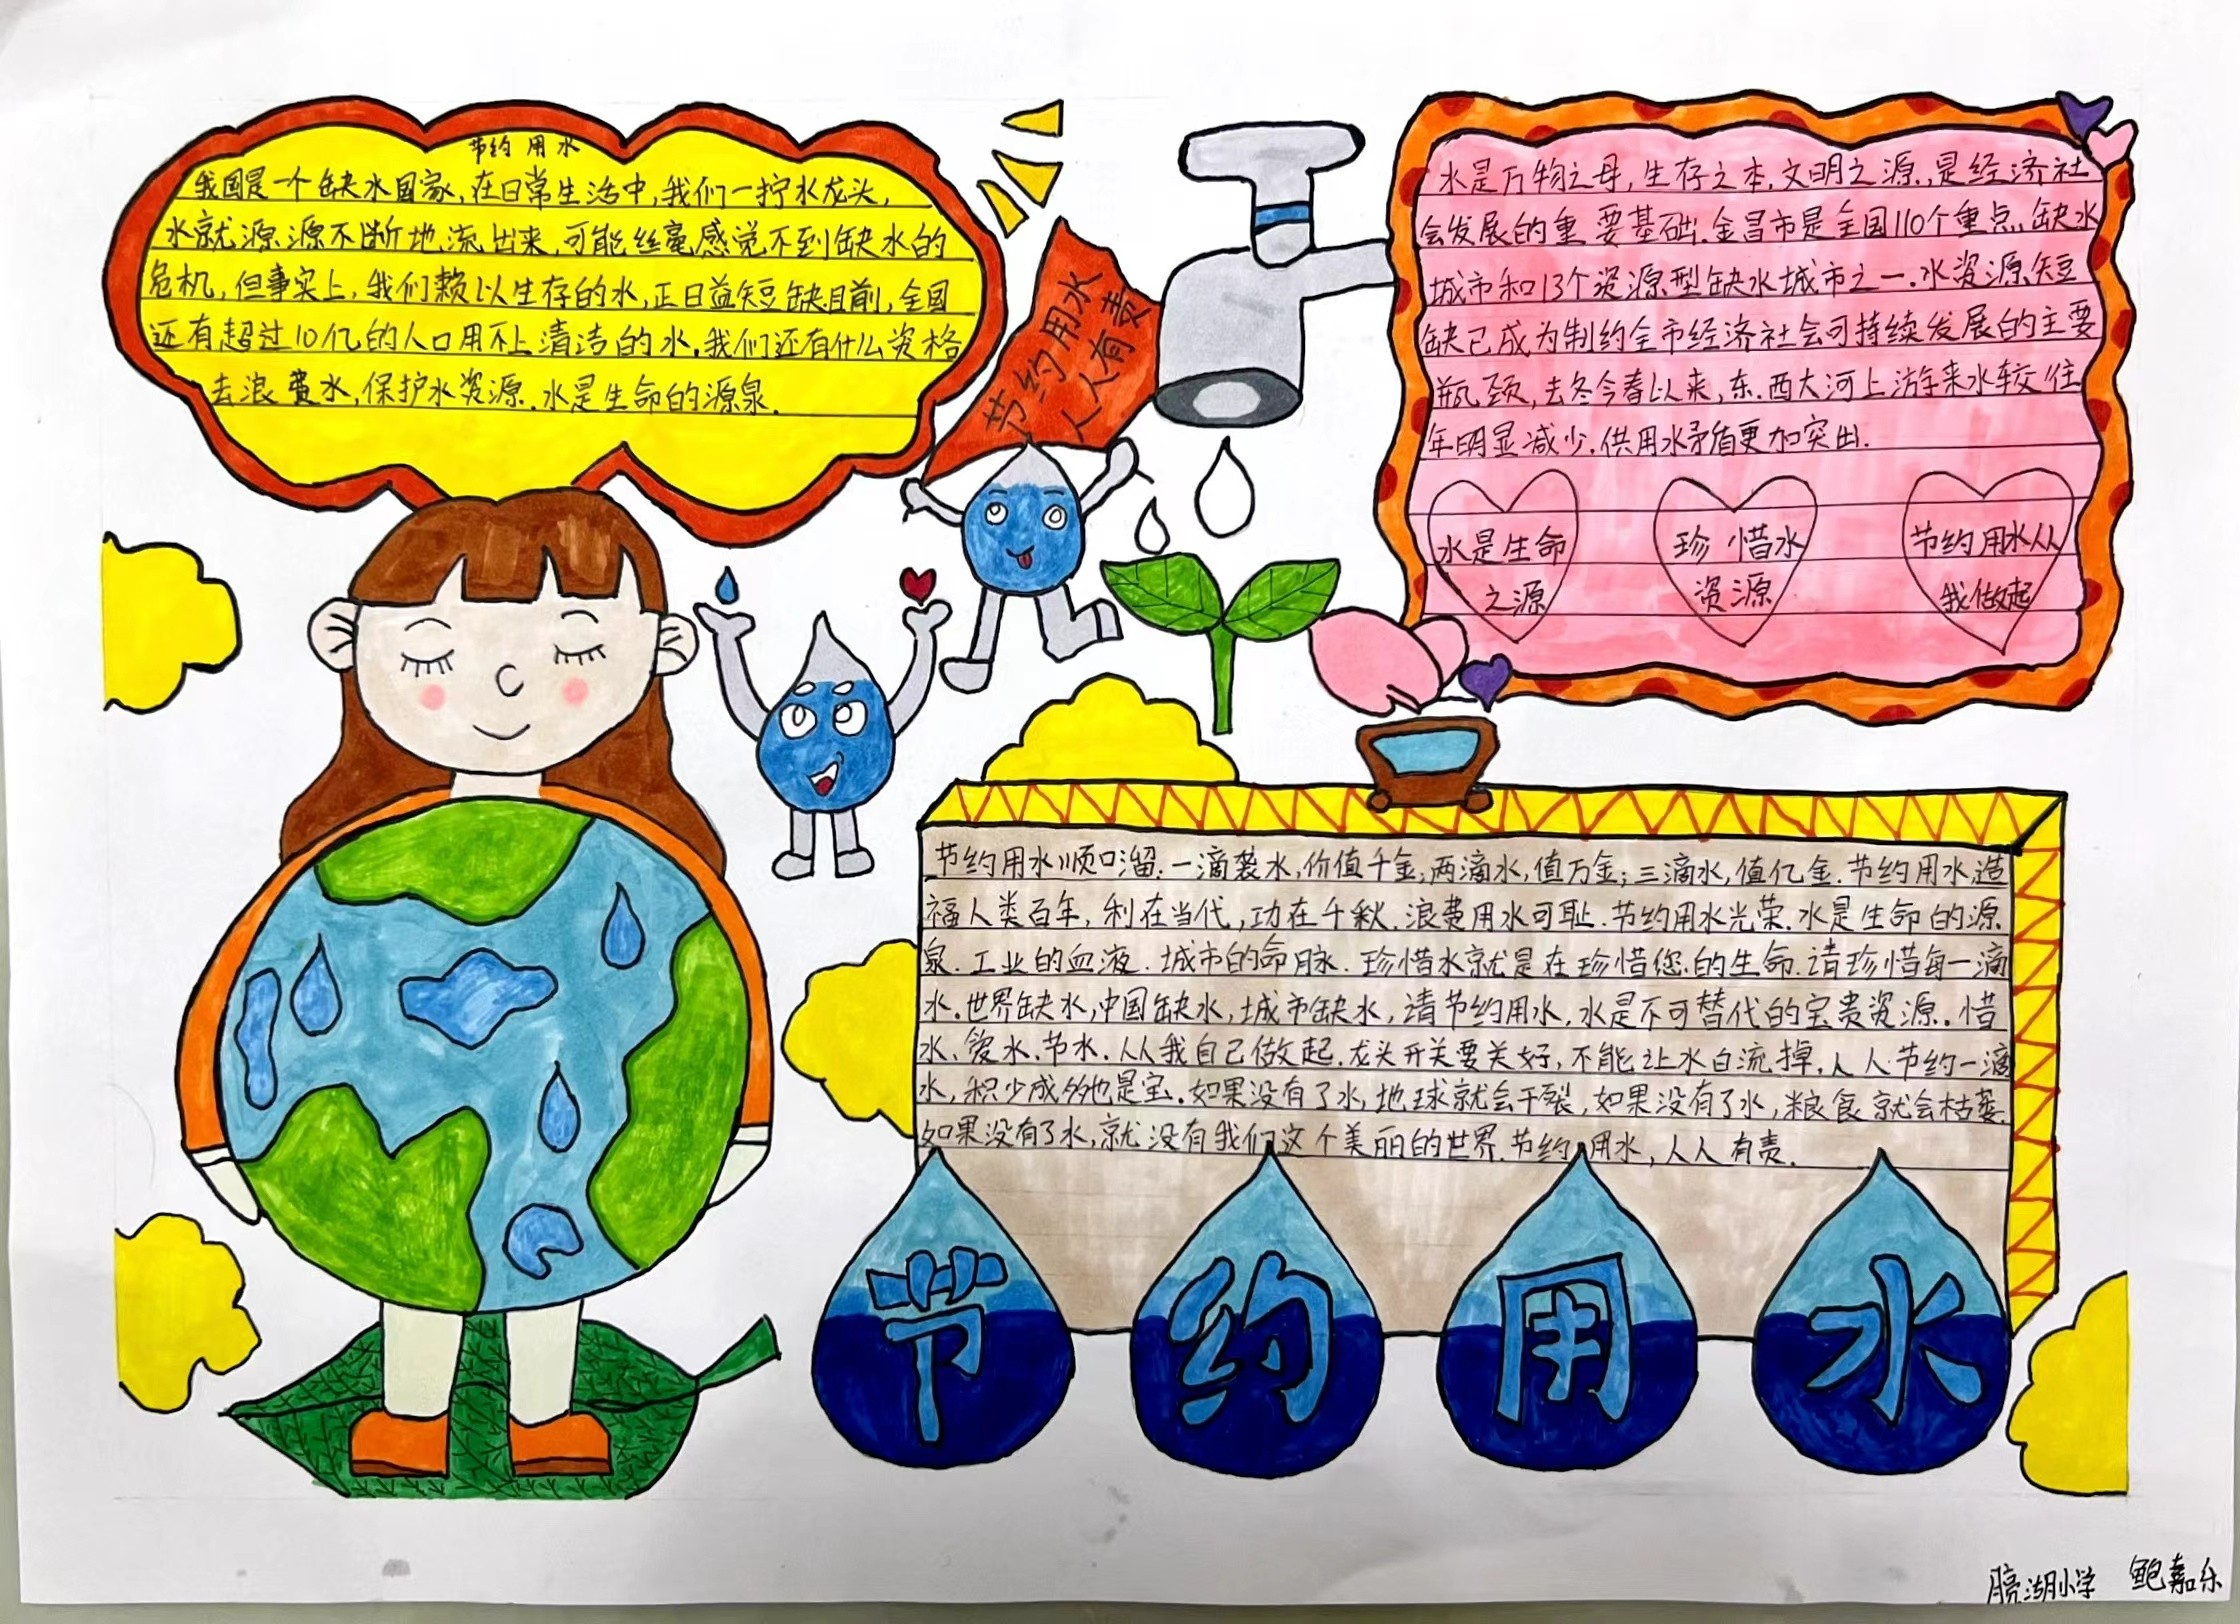 节约用水
我国是一个缺水国家,在日常生活中,我们一拧水龙头,
水就源源不断地流出来,可能丝毫感觉不到缺水的
危机,但事实上,我们赖以生存的水,正日益短缺目前,全国
还有超过10亿的人口用不上清洁的水.我们还有什么资格
去浪费水,保护水资源.水是生命的源泉.
节约用水
人人有责
水是万物之母,生存之本,文明之源,是经济社
会发展的重要基础.金昌市是全国110个重点缺水
城市和13个资源型缺水城市之一.水资源短
缺已成为制约全市经济社会可持续发展的主要
瓶颈,去冬今春以来,东.西大河上游来水较往
年明显减少.供用水矛盾更加突出.
水是生命
之源
珍惜水
资源
节约用水从
我做起
节约用水顺口溜:一滴装水,价值千金;两滴水,值万金;三滴水,值亿金.节约用水,造
福人类百年,利在当代,功在千秋.浪费用水可耻.节约用水光荣.水是生命的源
泉.工业的血液.城市的命脉.珍惜水就是在珍惜您的生命.请珍惜每一滴
水.世界缺水,中国缺水,城市缺水,请节约用水.水是不可替代的宝贵资源。惜
水、爱水.节水.从我自己做起.龙头开关要关好,不能让水白流掉.人人节约一滴
水,积少成多也是宝.如果没有了水,地球就会干裂,如果没有了水,粮食就会枯萎.
如果没有了水,就没有我们这个美丽的世界.节约用水,人人有责.
节约用水
湖小学 鲍嘉乐